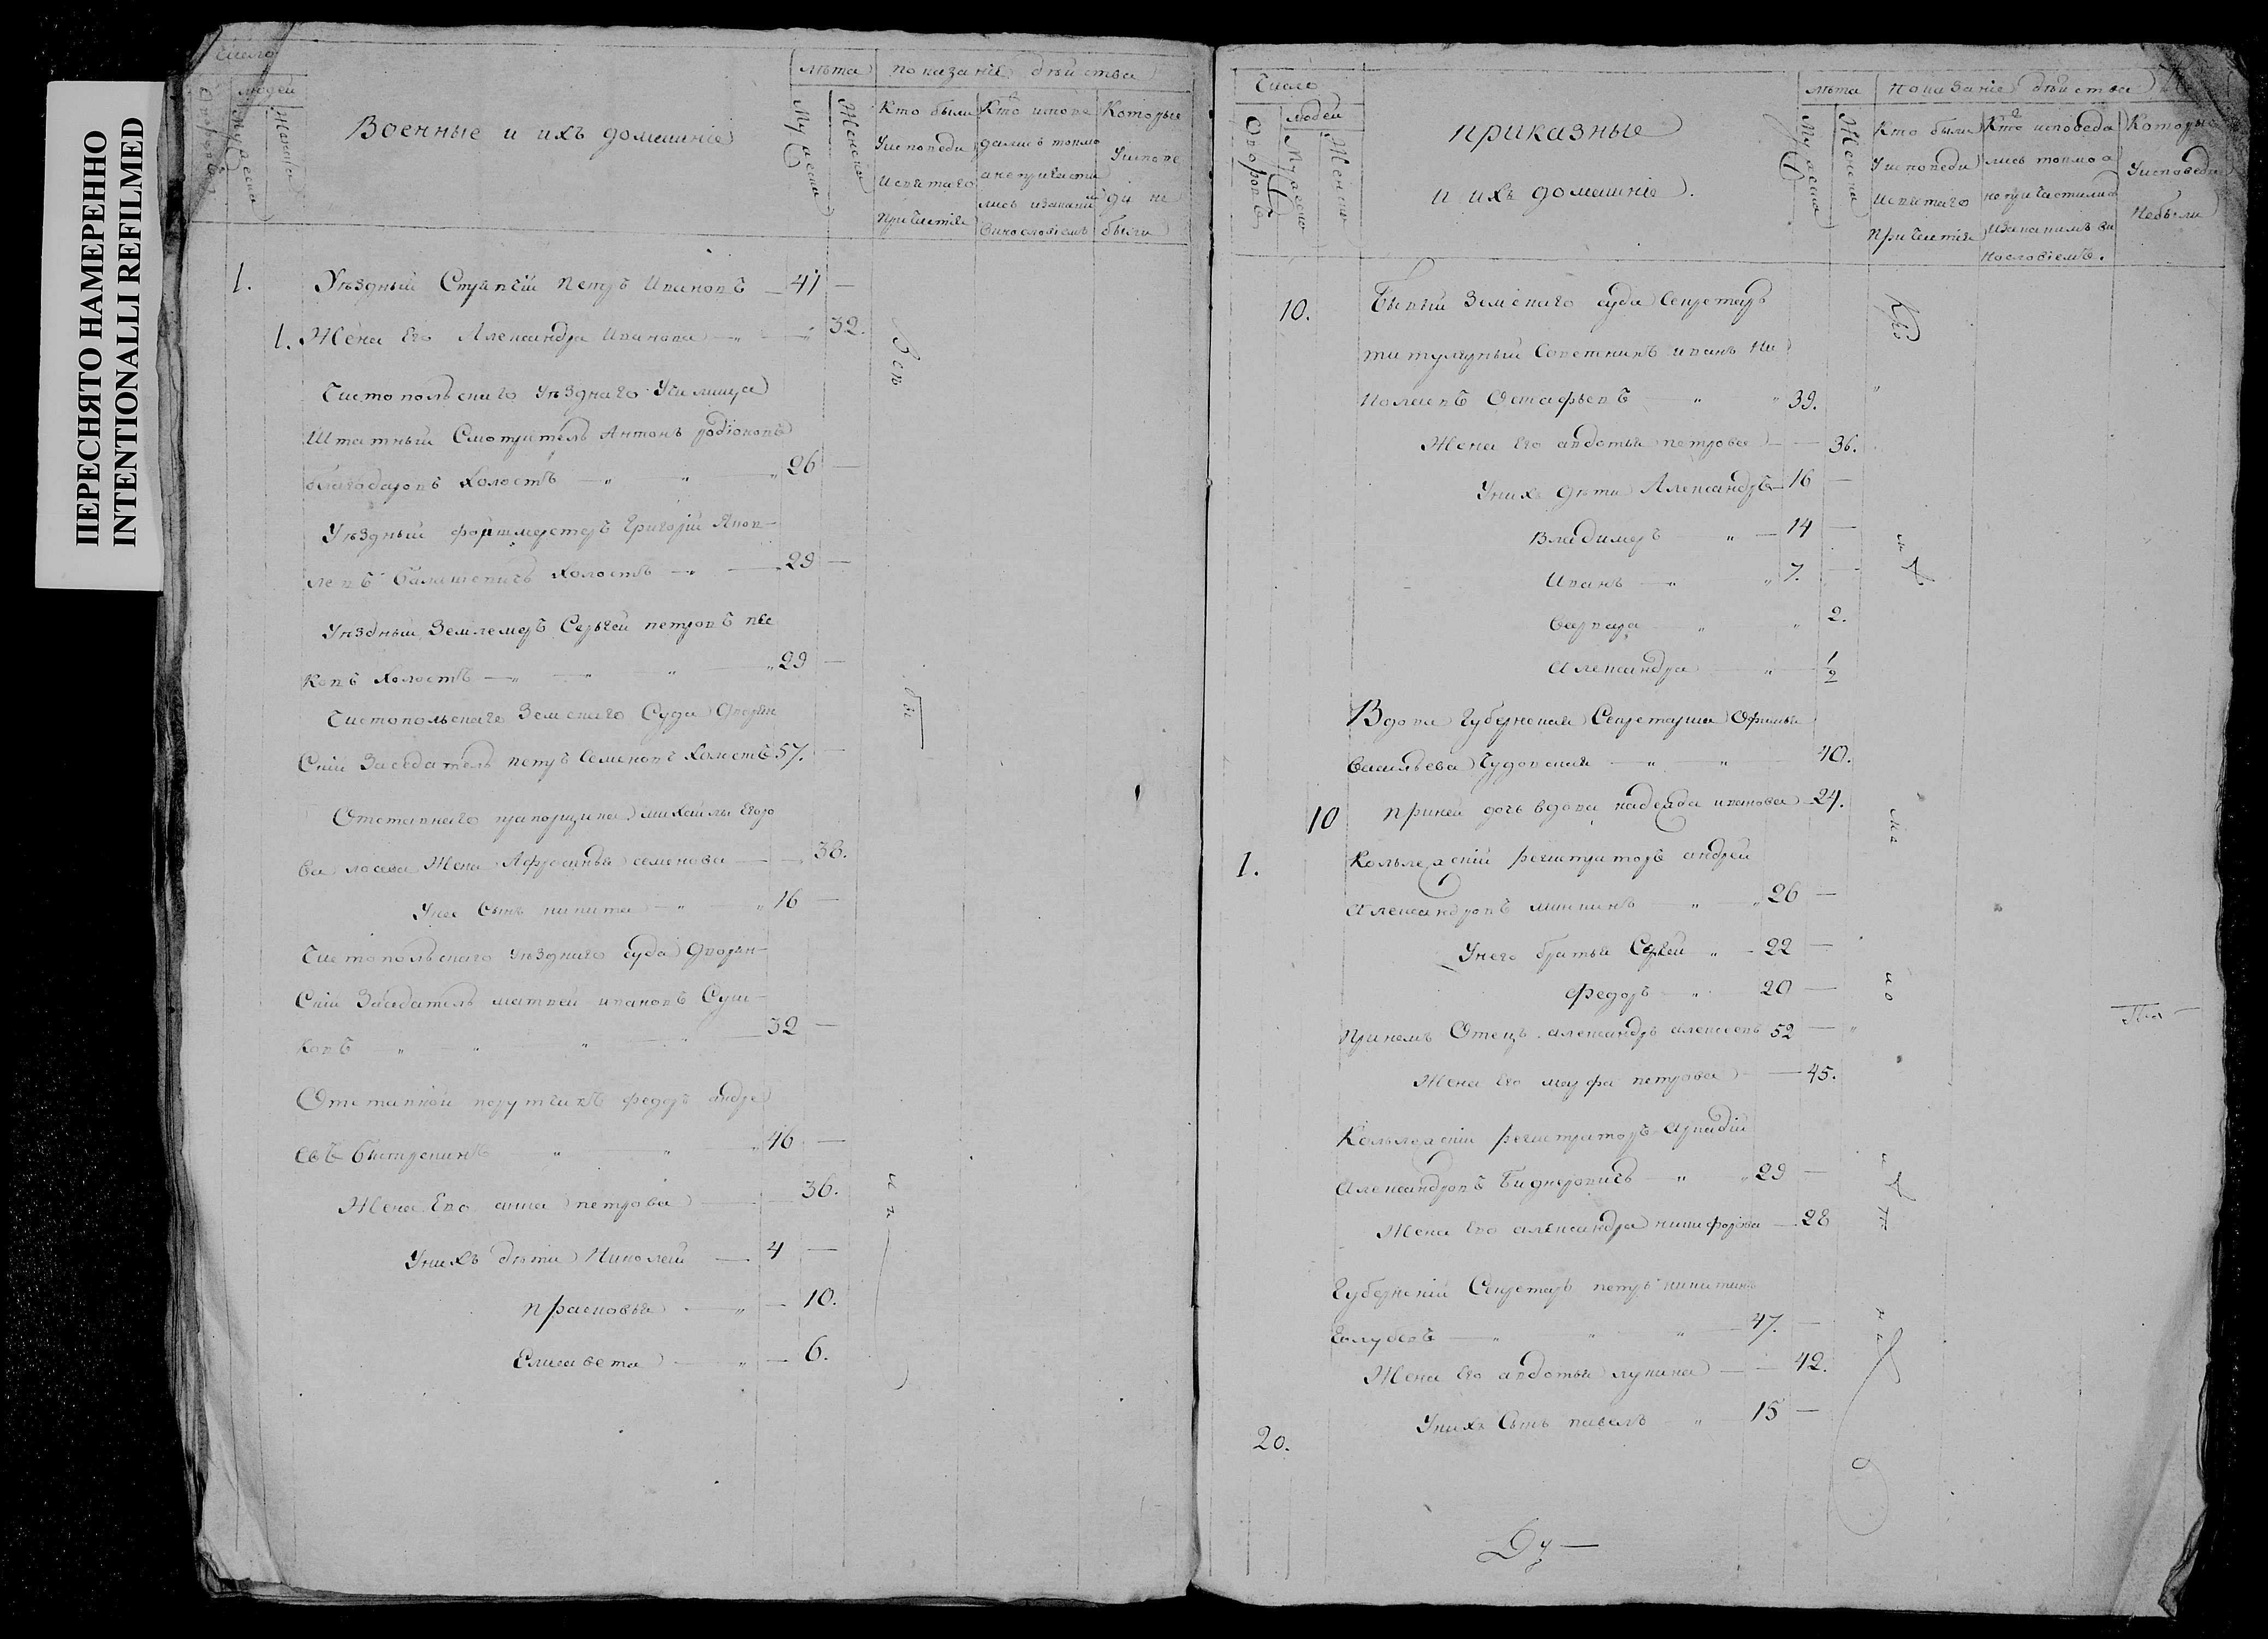 ПЕРЕСНЯТО НАМЕРЕННО
INTENTIONALLI REFILMED
Число
людей
Мужеска
Женска
Военные и ихъ домашніе
Лѣта
показаніе дѣйства
Мужеска
Женска
Кто были
Уисповеди
исвятаго
Причастія
Кто испове
дались токмо
анепричасти
лись изакаким
винословіемъ
Которые
Уиспове
ди не
были
1. Уѣздный Стряпчій петръ Ивановъ 41
1. Жена Его Александра Иванова 32.
Чистопольскаго Уѣзднаго Училища
Штатный Смотритель Антонъ родіоновъ
благодаровъ Холостъ 26
Уѣздный форшмерстеръ Григорій Яков-
левъ Холостъ 29
Уѣздный Землемеръ Сергей петровъ
ковъ Холостъ 29
Чистопольскаго Земскаго Суда Дворян
Скій Заседатель петръ Семеновъ Холостъ 57.
Отставнаго прапорщика михайлы Егоро
ва лосева Жена Афросинья семенова 38.
Унее Сынъ никита 16
Чистопольскаго Уѣзднаго Суда Дворян-
Скій Заседатель матвей ивановъ Суш-
ковъ 32
Отставной порутчикъ федоръ андре
евъ 46
Жена Его анна петрова 36.
Унихъ дѣти Николай 4
прасковья 10.
Елисавета 6.
Число
людей
Дворовъ
Мужеска
Женска
приказные
и ихъ домашніе.
Лѣта
показаніе дѣйства
Мужеска
Женска
Кто были
Уисповеди
исвятаго
Причастія
Кто исповеда
лись токмо а
непричастились
изакакимъ ви
нословіемъ.
Которые
Уисповеди
небыли
10. Бывый Земскаго суда Секретарь
титулярный Советникъ иванъ Ни
колаевъ Остафьевъ 39.
Жена Его авдотья петрова 36.
Унихъ дѣти Александръ 16
Владимеръ 14
Иванъ 7.
Варвара 2.
Александра 1/2
Вдова Губернская Секретарша Офимья
Васильева Чудовская 40.
10 приней дочь вдова надежда иванова 24.
1. Кольлежскій регистраторъ андрей
Александровъ мининъ 26
Унего братья Сергей 22
федоръ 20
принемъ Отецъ александръ алексеевъ 52
Жена Его марфа петрова 45.
Кольлежскій регистраторъ Аркадій
Александровъ 29
Жена Его александра никифорова 28
Губернскій Секретарь петръ никитинъ
Голубевъ 47.
Жена Его авдотья лукина 42.
Унихъ Сынъ павелъ 15
20.
Ду—